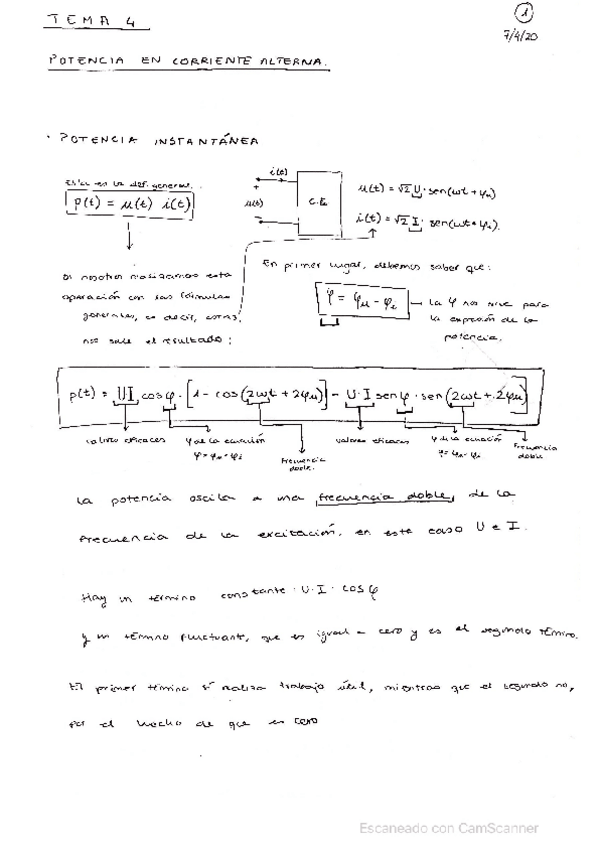 1
TEMA 4
7/4/20
POTENCIA EN CORRIENTE ALTERNA.
· POTENCIA INSTANTÁNEA
Esta es la def. general.
p(t) = u(t) i(t)
i(t)
+
u(t)
C.E.
u(t) = √2 U · sen(ωt + φu)
i(t) = √2 I · sen(ωt + φi).
En primer lugar, debemos saber que:
φ = φu - φi
la φ nos sirve para
la expresión de la
potencia.
Si nosotros realizamos esta
operación con las fórmulas
generales, es decir, estas,
nos sale el resultado:
p(t) = U·I cosφ · [1 - cos(2ωt + 2φu)] - U·I senφ · sen(2ωt + 2φu)
valores eficaces
φ de la ecuación
φ = φu - φi
Frecuencia
doble.
valores eficaces
φ de la ecuación
φ = φu - φi
Frecuencia
doble
La potencia oscila a una frecuencia doble, de la
frecuencia de la excitación, en este caso U e I.
Hay un término constante · U·I·cosφ
y un término fluctuante, que es igual a cero y es el segundo término.
El primer término sí realiza trabajo útil, mientras que el segundo no,
por el hecho de que es cero
Escaneado con CamScanner